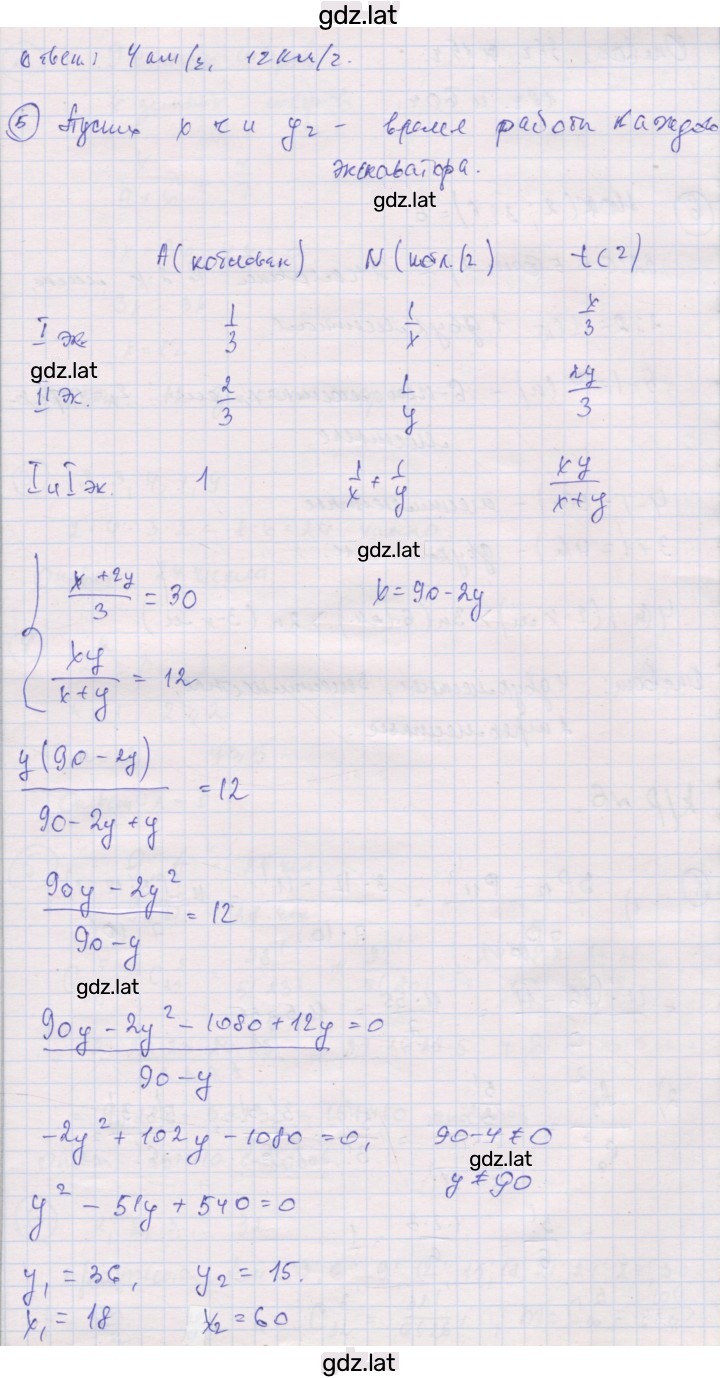 gdz.lat
Ответ: 4 км/ч, 12 км/ч.
5 Пусть x ч и y ч - время работы каждого
экскаватора.
gdz.lat
A (котлован) N (котл/ч) t (ч)
I эк. 1/3 1/x x/3
gdz.lat
II эк. 2/3 1/y 2y/3
I и I эк. 1 1/x + 1/y xy/(x+y)
gdz.lat
{ (x + 2y)/3 = 30 x = 90 - 2y
xy/(x+y) = 12
y(90 - 2y)/(90 - 2y + y) = 12
(90y - 2y²)/(90 - y) = 12
gdz.lat
(90y - 2y² - 1080 + 12y)/(90 - y) = 0
-2y² + 102y - 1080 = 0, 90 - y ≠ 0
gdz.lat
y ≠ 90
y² - 51y + 540 = 0
y₁ = 36, y₂ = 15.
x₁ = 18 x₂ = 60
gdz.lat